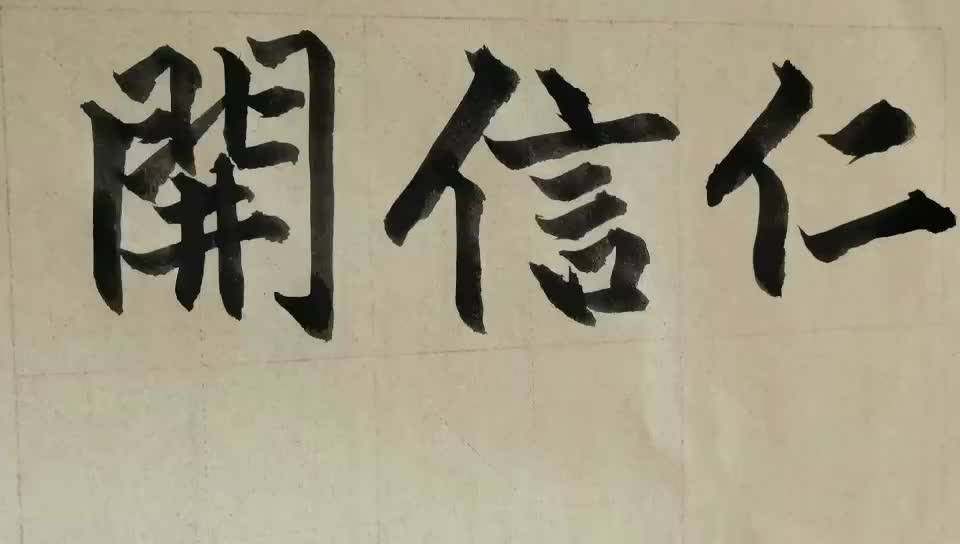 開信仁